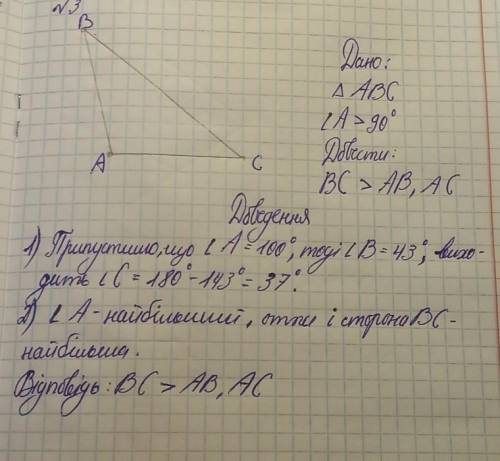 №3
B
A
C
Дано:
△ ABC
∠A > 90°
Довести:
BC > AB, AC
Доведення
1) Припустимо, що ∠A = 100°, тоді ∠B = 43°, вихо-
дить ∠C = 180° - 143° = 37°.
2) ∠A - найбільший, отже і сторона BC -
найбільша.
Відповідь: BC > AB, AC